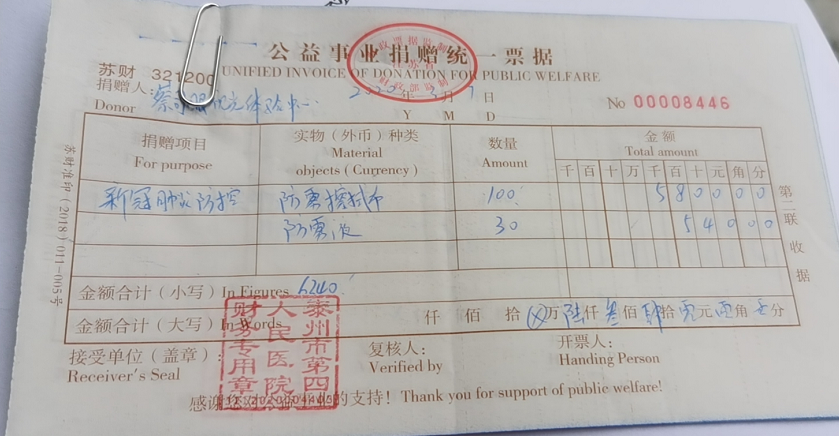 公益事业捐赠统一票据
UNIFIED INVOICE OF DONATION FOR PUBLIC WELFARE
苏财 321200
捐赠人: 视光体验中心 2020年3月7日
Donor Y M D
No 00008446
捐赠项目 实物（外币）种类 数量 金额
For purpose Material objects (Currency) Amount Total amount
千 百 十 万 千 百 十 元 角 分
新冠肺炎防控 防雾擦拭布 100 5 8 0 0 0 0
防雾液 30 5 4 0 0 0
金额合计（小写）In Figures 6240
金额合计（大写）In Words 仟 佰 拾 万 陆仟 佰 肆拾 元 角 分
接受单位（盖章）: 复核人: 开票人:
Receiver's Seal Verified by Handing Person
感谢您 的支持! Thank you for support of public welfare!
泰州市第四人民医院
财务专用章
苏财准印（2018）011-005号
第二联 收据